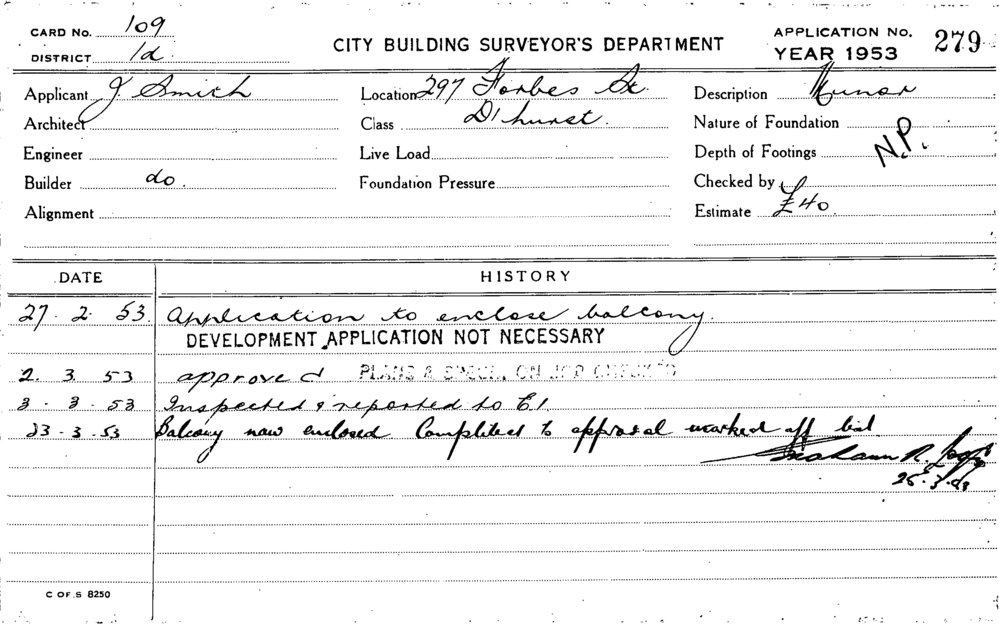 CARD No. 109
DISTRICT 1d
CITY BUILDING SURVEYOR'S DEPARTMENT
APPLICATION No. 279
YEAR 1953
Applicant J Smith
Location 297 Forbes St.
Description Minor
Architect
Class D'hurst.
Nature of Foundation
Engineer
Live Load
Depth of Footings N.P.
Builder do
Foundation Pressure
Checked by
Alignment
Estimate £40.
DATE HISTORY
27. 2. 53. Application to enclose balcony.
DEVELOPMENT APPLICATION NOT NECESSARY
2. 3. 53 approved PLANS & SPECS. ON JOB CHECKED
3-3-53 Inspected & reported to C.I.
23-3-53 Balcony now enclosed Completed to approval marked off list
Graham R.
25.3.53
C OF.S 8250